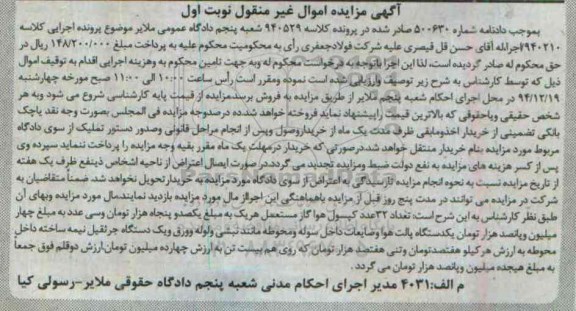 آگهی مزایده اموال غیر منقول نوبت اول
بموجب دادنامه شماره ۵۰۰۶۳۰ صادر شده در پرونده کلاسه ۹۴۰۵۲۹ شعبه پنجم دادگاه عمومی ملایر موضوع پرونده اجرایی کلاسه
۹۴۰۲۱۰ اجرا له آقای حسن قل قیصری علیه شرکت فولاد جعفری رأی به محکومیت محکوم علیه به پرداخت مبلغ ۱۴۸/۲۰۰/۰۰۰ ریال در
حق محکوم له صادر گردیده است، لذا این اجرا باتوجه به درخواست محکوم له وبه جهت تامین محکوم به وهزینه اجرایی اقدام به توقیف اموال
ذیل که توسط کارشناس به شرح زیر توصیف وارزیابی شده است نموده ومقرر است رأس ساعت ۱۰:۰۰ الی ۱۱:۰۰ صبح مورخه چهارشنبه
۹۴/۱۲/۱۹ در محل اجرای احکام شعبه پنجم ملایر از طریق مزایده به فروش برسد،مزایده از قیمت پایه کارشناسی شروع می شود وبه هر
شخص حقیقی وحقوقی که بالاترین قیمت راپیشنهاد نماید فروخته خواهد شد،ده درصدوجه مزایده فی المجلس بصورت وجه نقد یاچک
بانکی تضمینی از خریدار اخذومابقی ظرف مدت یک ماه از خریداروصول وپس از انجام مراحل قانونی وصدور دستور تملیک از سوی دادگاه
مربوط مورد مزایده بنام خریدار منتقل خواهد شد،درصورتی که خریدار درمهلت یک ماه مقرر بقیه وجه مزایده را پرداخت ننماید سپرده وی
پس از کسر هزینه های مزایده به نفع دولت ضبط ومزایده تجدید می گردد.در صورت ایصال اعتراض از ناحیه اشخاص ذینفع ظرف یک هفته
از تاریخ مزایده نسبت به نحوه انجام مزایده تارسیدگی به اعتراض از سوی دادگاه مورد مزایده به خریدار تحویل نخواهد شد ضمناً متقاضیان به
شرکت در مزایده می توانند در مدت پنج روز قبل از مزایده باهماهنگی این اجرااز مال مورد مزایده بازدید نمایند،مال مورد مزایده وبهای آن
طبق نظر کارشناس به این شرح است: تعداد ۳۲عدد کپسول هوا گاز مستعمل هریک به مبلغ یکصدو پنجاه هزار تومان وسی عدد به مبلغ چهار
میلیون وپانصد هزار تومان یکدستگاه پالت هوا وضایعات داخل سوله ومحوطه مانند نبشی ولوله وورق ویک دستگاه جرثقیل نیمه ساخته داخل
محوطه به ارزش هر کیلو هفتصدتومان وتنی هفتصد هزار تومان که روی هم بیست تن به ارزش چهارده میلیون تومان،ارزش دوقلم فوق جمعاً
به مبلغ هیجده میلیون وپانصد هزار تومان می گردد.
م الف:۴۰۳۱ مدیر اجرای احکام مدنی شعبه پنجم دادگاه حقوقی ملایر-رسولی کیا